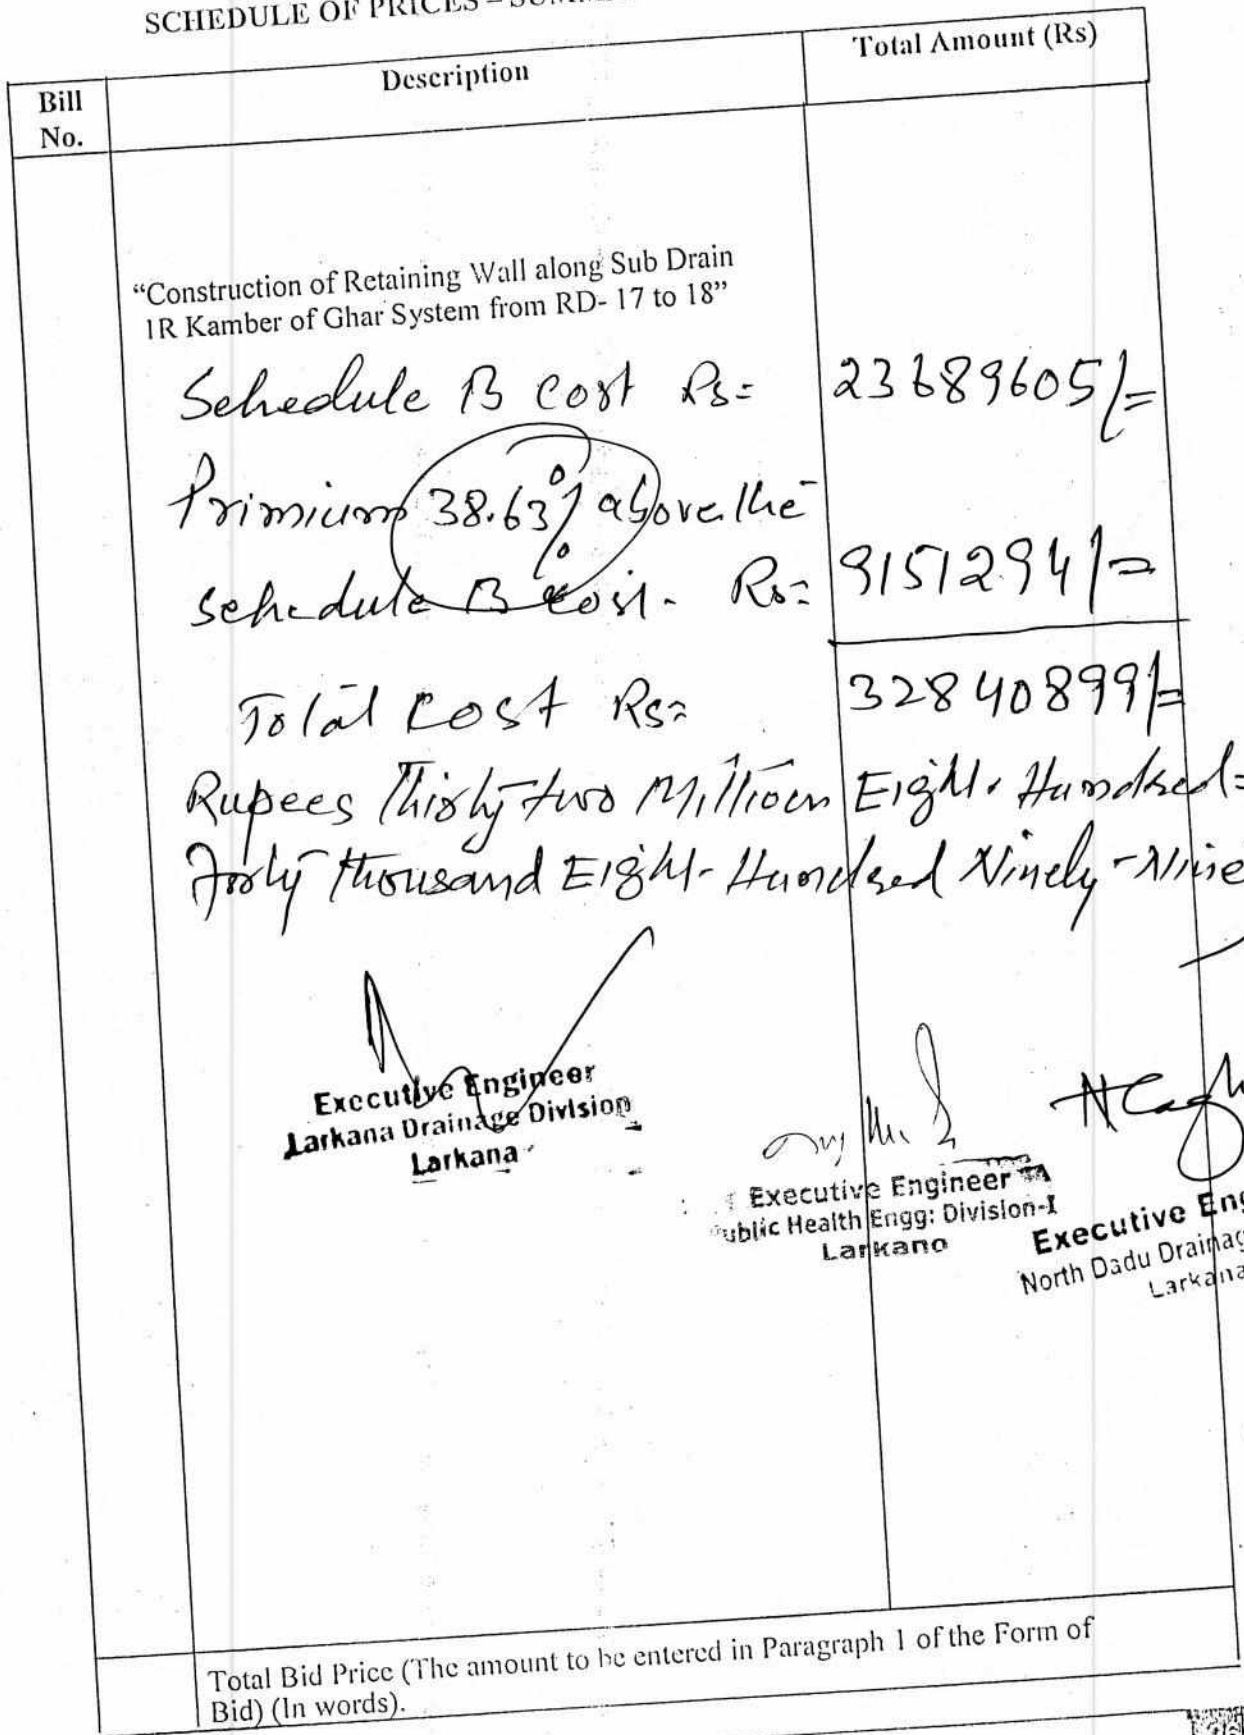 SCHEDULE OF PRICES –
Bill No.
Description
Total Amount (Rs)
“Construction of Retaining Wall along Sub Drain
1R Kamber of Ghar System from RD- 17 to 18”
Schedule B Cost Rs= 23689605/=
Primium 38.63% above the
schedule B cost- Rs= 9151294/=
Total Cost Rs= 32840899/=
Rupees Thirty two Million Eight Hundred=
Forty thousand Eight-Hundred Ninety-Nine
Executive Engineer
Larkana Drainage Division
Larkana
Executive Engineer
Public Health Engg: Division-I
Larkano
Executive Eng
North Dadu Drainag
Larkana
Total Bid Price (The amount to be entered in Paragraph 1 of the Form of
Bid) (In words).